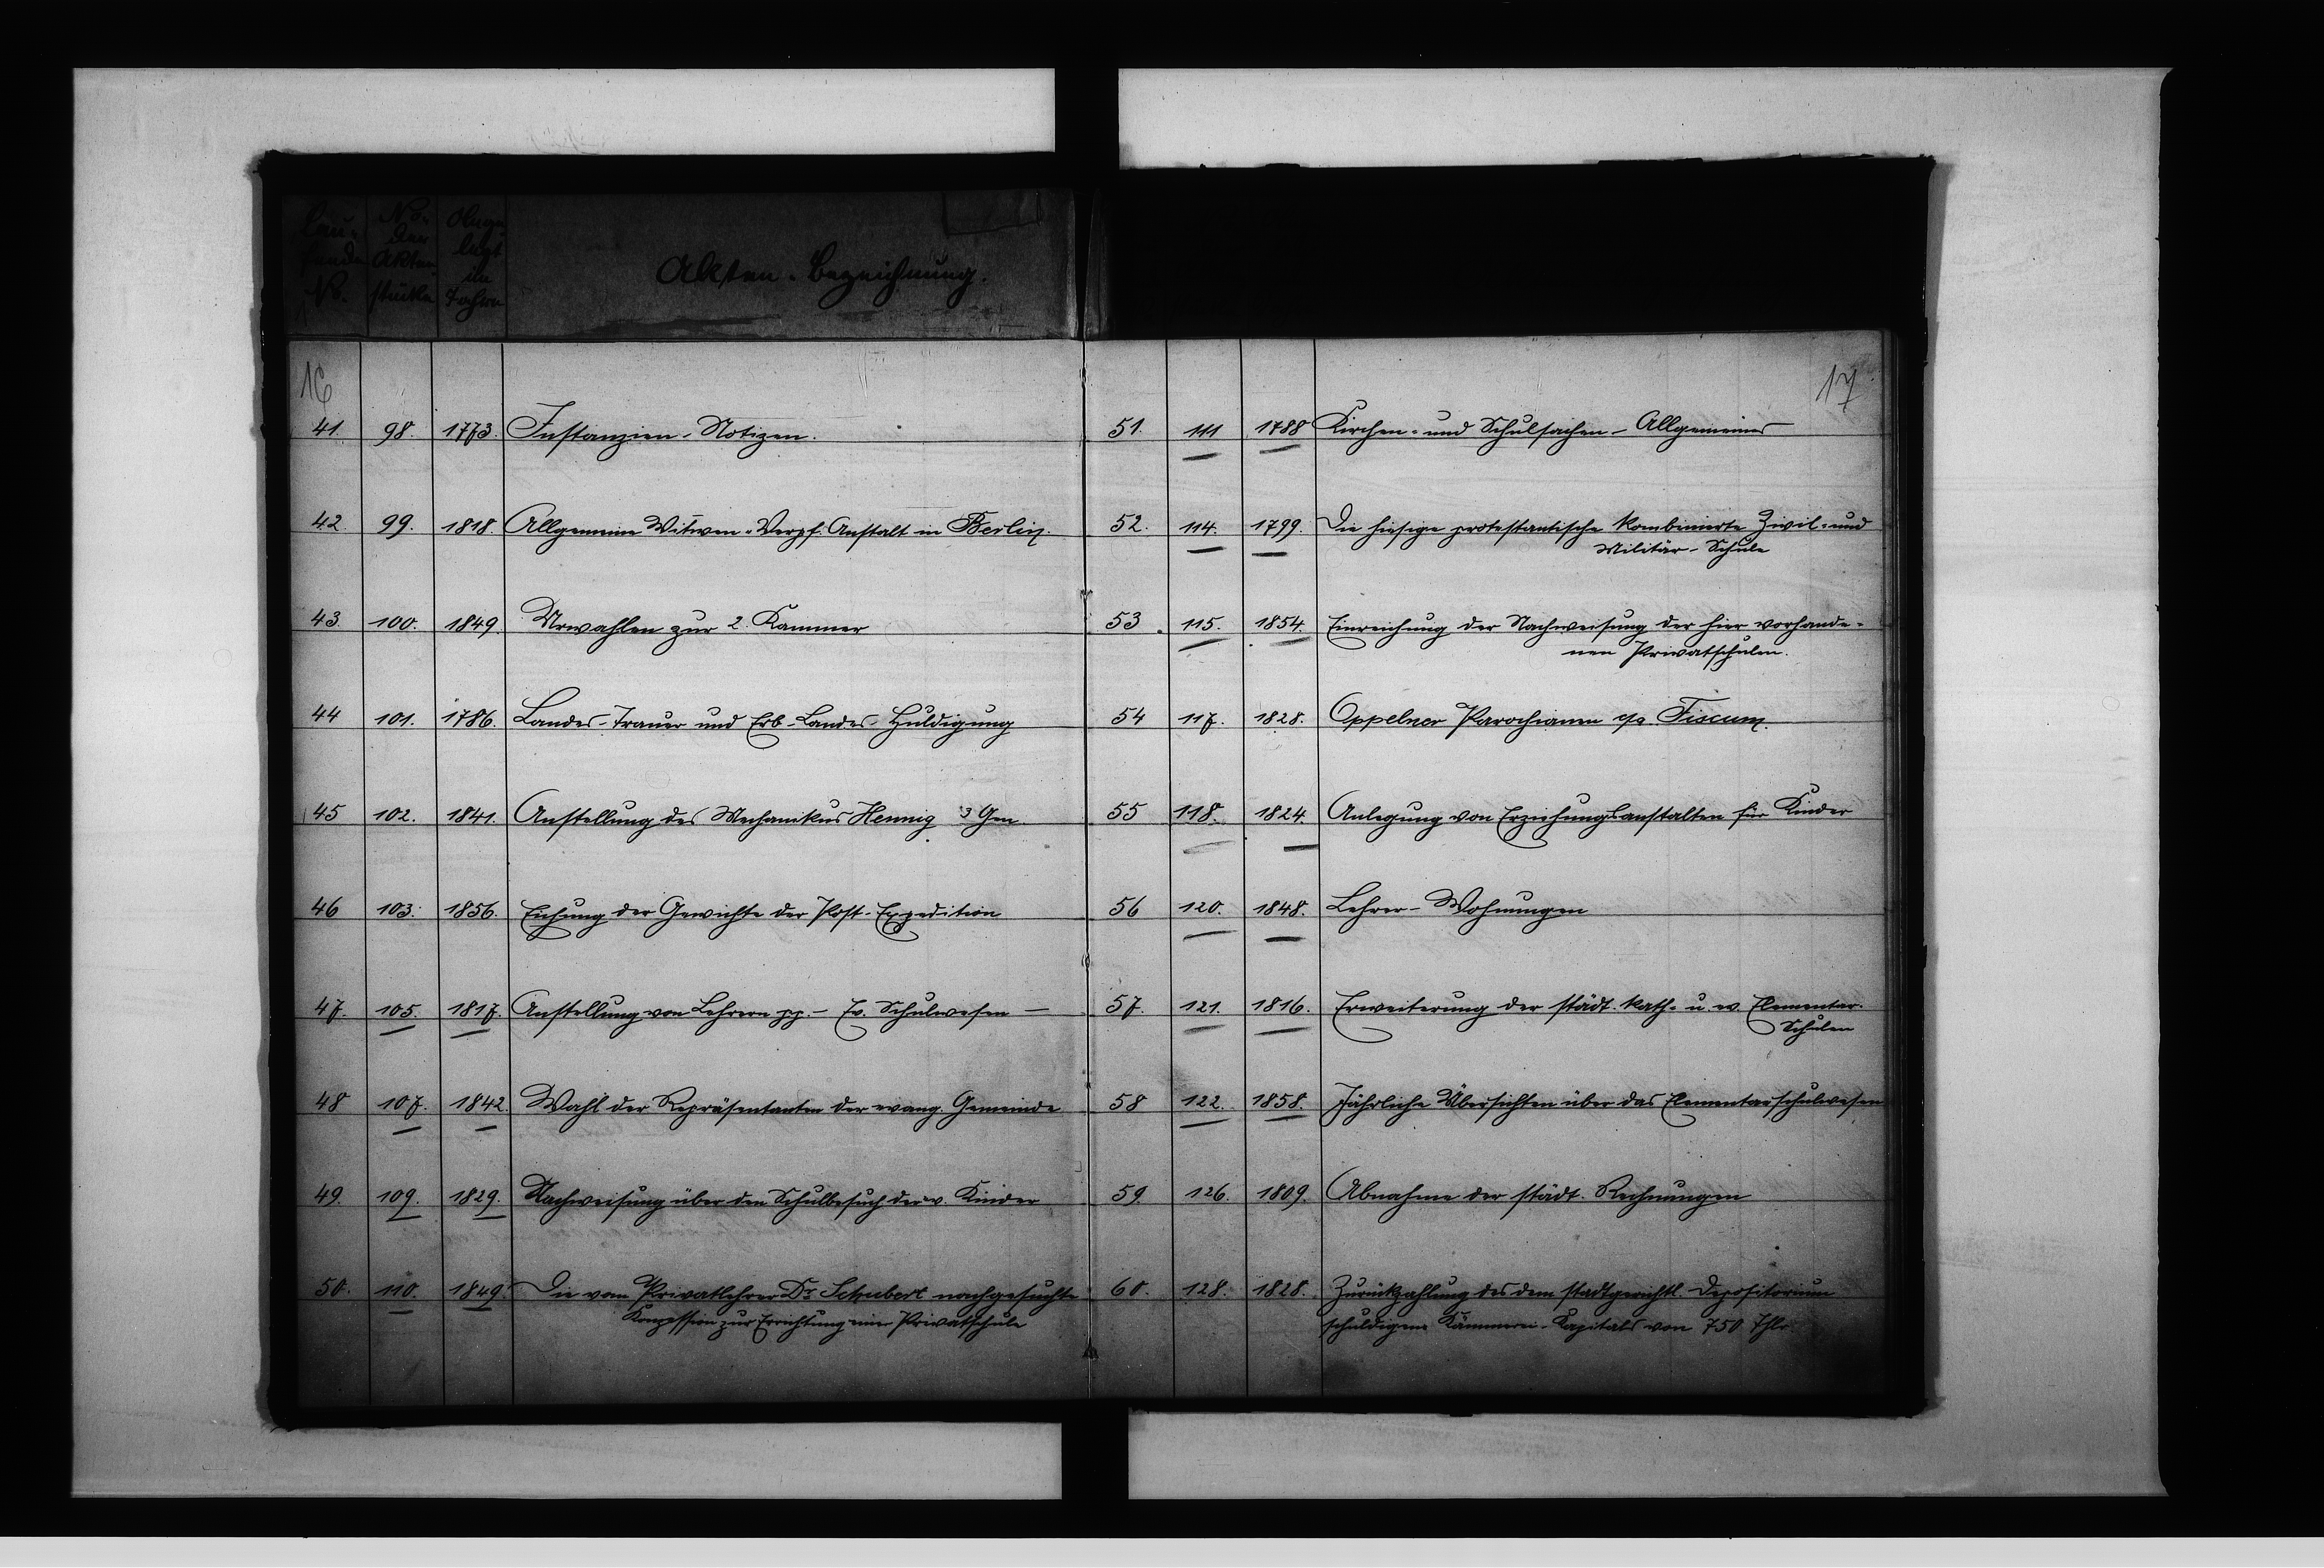 Lau-
fende
No.
No.
der
Akten
stücke
Abge-
legt
im
Fache
Akten-Bezeichnung.
16
41. 98. 1773. Instanzien-Notizen.
42. 99. 1818. Allgemeine Witwen-Verpf. Anstalt in Berlin.
43. 100. 1849. Urwahlen zur 2. Kammer
44 101. 1786. Landes-Trauer und Erb-Landes-Huldigung
45 102. 1841. Anstellung des Mechanikus Hennig Gen.
46 103. 1856. Eichung der Gewichte der Post-Expedition
47. 105. 1817. Anstellung von Lehrern pp. – Ev. Schulwesen –
48 107. 1842. Wahl der Repräsentanten der evang. Gemeinde
49. 109. 1829. Nachweisung über den Schulbesuch der ev. Kinder
50. 110. 1849. Die vom Privatlehrer Dr. Schubert nachgesuchte
Konzession zur Errichtung einer Privatschule
17
51. 111 1788 Kirchen- und Schulsachen – Allgemeines
52. 114. 1799. Die hiesige protestantische kombinierte Zivil- und
Militär-Schule
53. 115. 1854. Einreichung der Nachweisung der hier vorhande-
nen Privatschulen.
54 117. 1828. Oppelner Parochianen c/a Fiscum.
55 118. 1824. Anlegung von Erziehungsanstalten für Kinder
56 120. 1848. Lehrer-Wohnungen
57. 121. 1816. Erweiterung der städt. kath. u. ev. Elementar-
Schulen
58 122. 1858. Jährliche Übersichten über das Elementarschulwesen
59. 126. 1809. Abnahme der städt. Rechnungen
60. 128. 1828. Zurückzahlung des dem stadtgerichtl. Depositorium
schuldigen Kämmerei-Kapitals von 750 Thlr